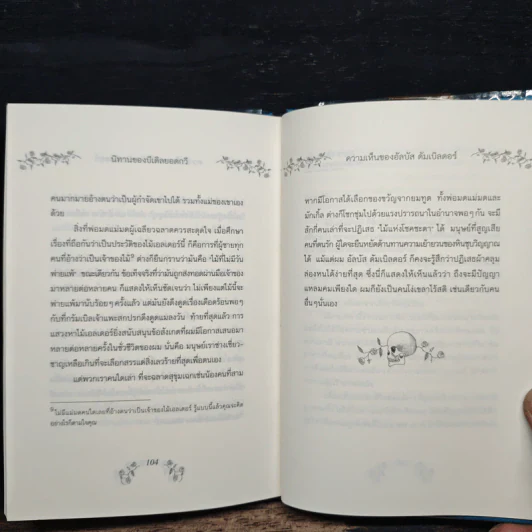 นิทานของบีเดิลยอดกวี
คนมากมายอ้างตนว่าเป็นผู้กำจัดเขาไปได้ รวมทั้งแม่ของเขาเอง
ด้วย
สิ่งที่พ่อมดแม่มดผู้เฉลียวฉลาดควรสะดุดใจ เมื่อศึกษา
เรื่องที่ถือกันว่าเป็นประวัติของไม้เอลเดอร์นี้ ก็คือการที่ผู้ชายทุก
คนที่อ้างว่าเป็นเจ้าของไม้ ต่างก็ยืนกรานว่ามันคือ 'ไม้ที่ไม่มีวัน
พ่ายแพ้' ขณะเดียวกัน ข้อเท็จจริงที่ว่ามันถูกส่งทอดผ่านมือเจ้าของ
มาหลายต่อหลายคน ก็แสดงให้เห็นชัดเจนว่า ไม่เพียงแต่ไม้นี้จะ
พ่ายแพ้มานับร้อยๆ ครั้งแล้ว แต่มันยังดึงดูดเรื่องเดือดร้อนพอๆ
กับที่กรัมเบิลเจ้าแพะสกปรกดึงดูดแมลงวัน ท้ายที่สุดแล้ว การ
แสวงหาไม้เอลเดอร์ยิ่งสนับสนุนข้อสังเกตที่ผมมีโอกาสเสนอมา
หลายต่อหลายครั้งในชั่วชีวิตของผม นั่นคือ มนุษย์เราช่างเชี่ยว-
ชาญเหลือเกินที่จะเลือกสรรแต่สิ่งเลวร้ายที่สุดเพื่อตนเอง
แต่พวกเราคนใดเล่า ที่จะฉลาดสุขุมเฉกเช่นน้องคนที่สาม
ไม่มีแม่มดคนใดเลยที่อ้างตนว่าเป็นเจ้าของไม้เอลเดอร์ รู้แบบนี้แล้วคุณจะคิด
อย่างไรก็ตามใจคุณ
104
ความเห็นของอัลบัส ดัมเบิลดอร์
หากมีโอกาสได้เลือกของขวัญจากยมทูต ทั้งพ่อมดแม่มดและ
มักเกิ้ล ต่างก็โชกชุ่มไปด้วยแรงปรารถนาในอำนาจพอๆ กัน จะมี
สักกี่คนเล่าที่จะปฏิเสธ 'ไม้แห่งโชคชะตา' ได้ มนุษย์ที่สูญเสีย
คนที่รัก ผู้ใดจะยืนหยัดต้านทานความเย้ายวนของหินชุบวิญญาณ
ได้ แม้แต่ผม อัลบัส ดัมเบิลดอร์ ก็คงจะรู้สึกว่าปฏิเสธผ้าคลุม
ล่องหนได้ง่ายที่สุด ซึ่งนี่ก็แสดงให้เห็นแล้วว่า ถึงจะมีปัญญา
แหลมคมเพียงใด ผมก็ยังเป็นคนโง่เขลาไร้สติ เช่นเดียวกับคน
อื่นๆ นั่นเอง